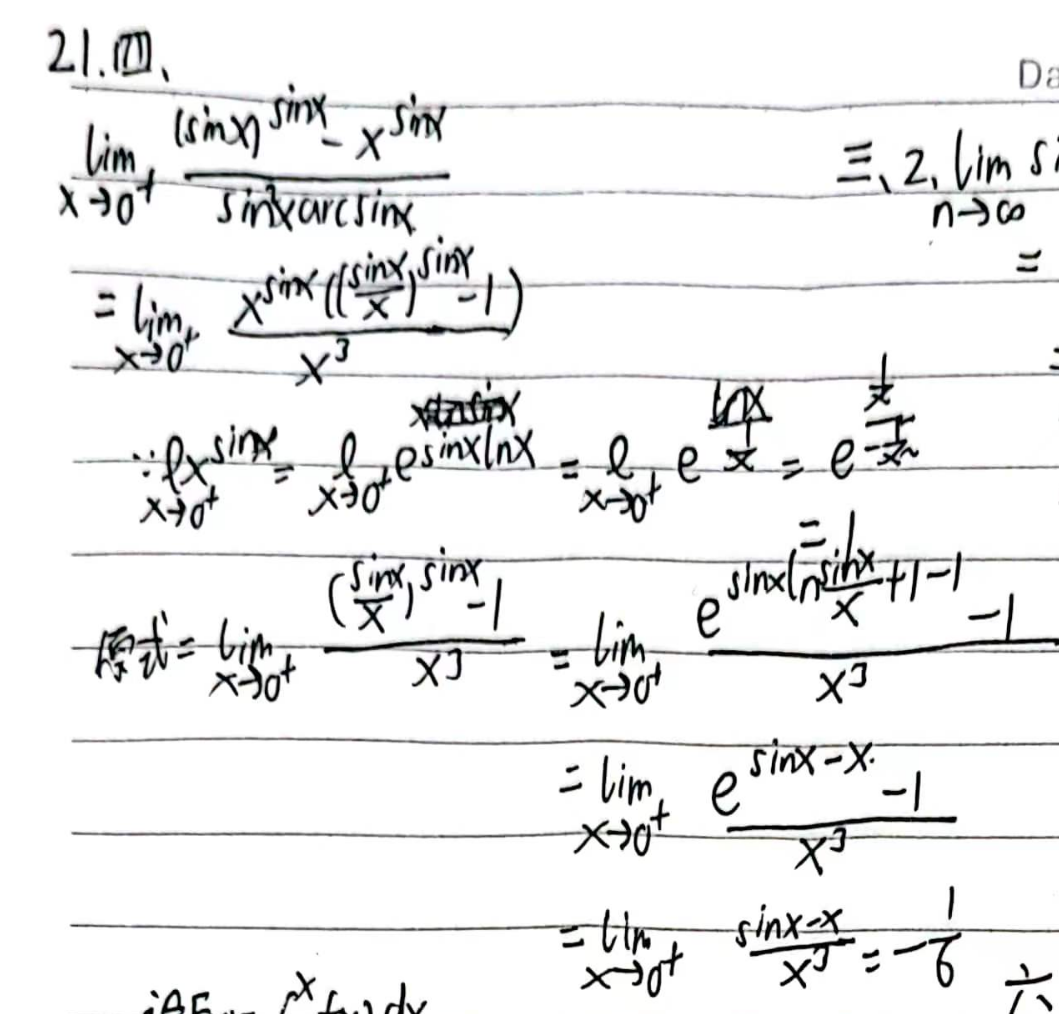 21.四、
Da
lim x→0⁺ ((sinx)^sinx - x^sinx)/(sin²x arcsinx)
三、2. lim n→∞ si
= lim x→0⁺ (x^sinx((sinx/x)^sinx - 1))/x³
=
∵ l x→0⁺ x^sinx = l x→0⁺ e^(sinxlnx) = l x→0⁺ e^(lnx/(1/x)) = e^((1/x)/(-1/x²))
= 1
原式 = lim x→0⁺ ((sinx/x)^sinx - 1)/x³ = lim x→0⁺ (e^(sinx ln(sinx/x +1-1)) - 1)/x³
= lim x→0⁺ (e^(sinx-x) - 1)/x³
= lim x→0⁺ (sinx-x)/x³ = -1/6
六